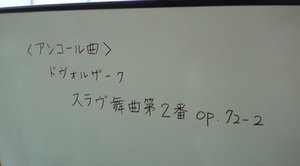 〈アンコール曲〉
ドヴォルザーク
スラヴ舞曲第2番 op.72-2